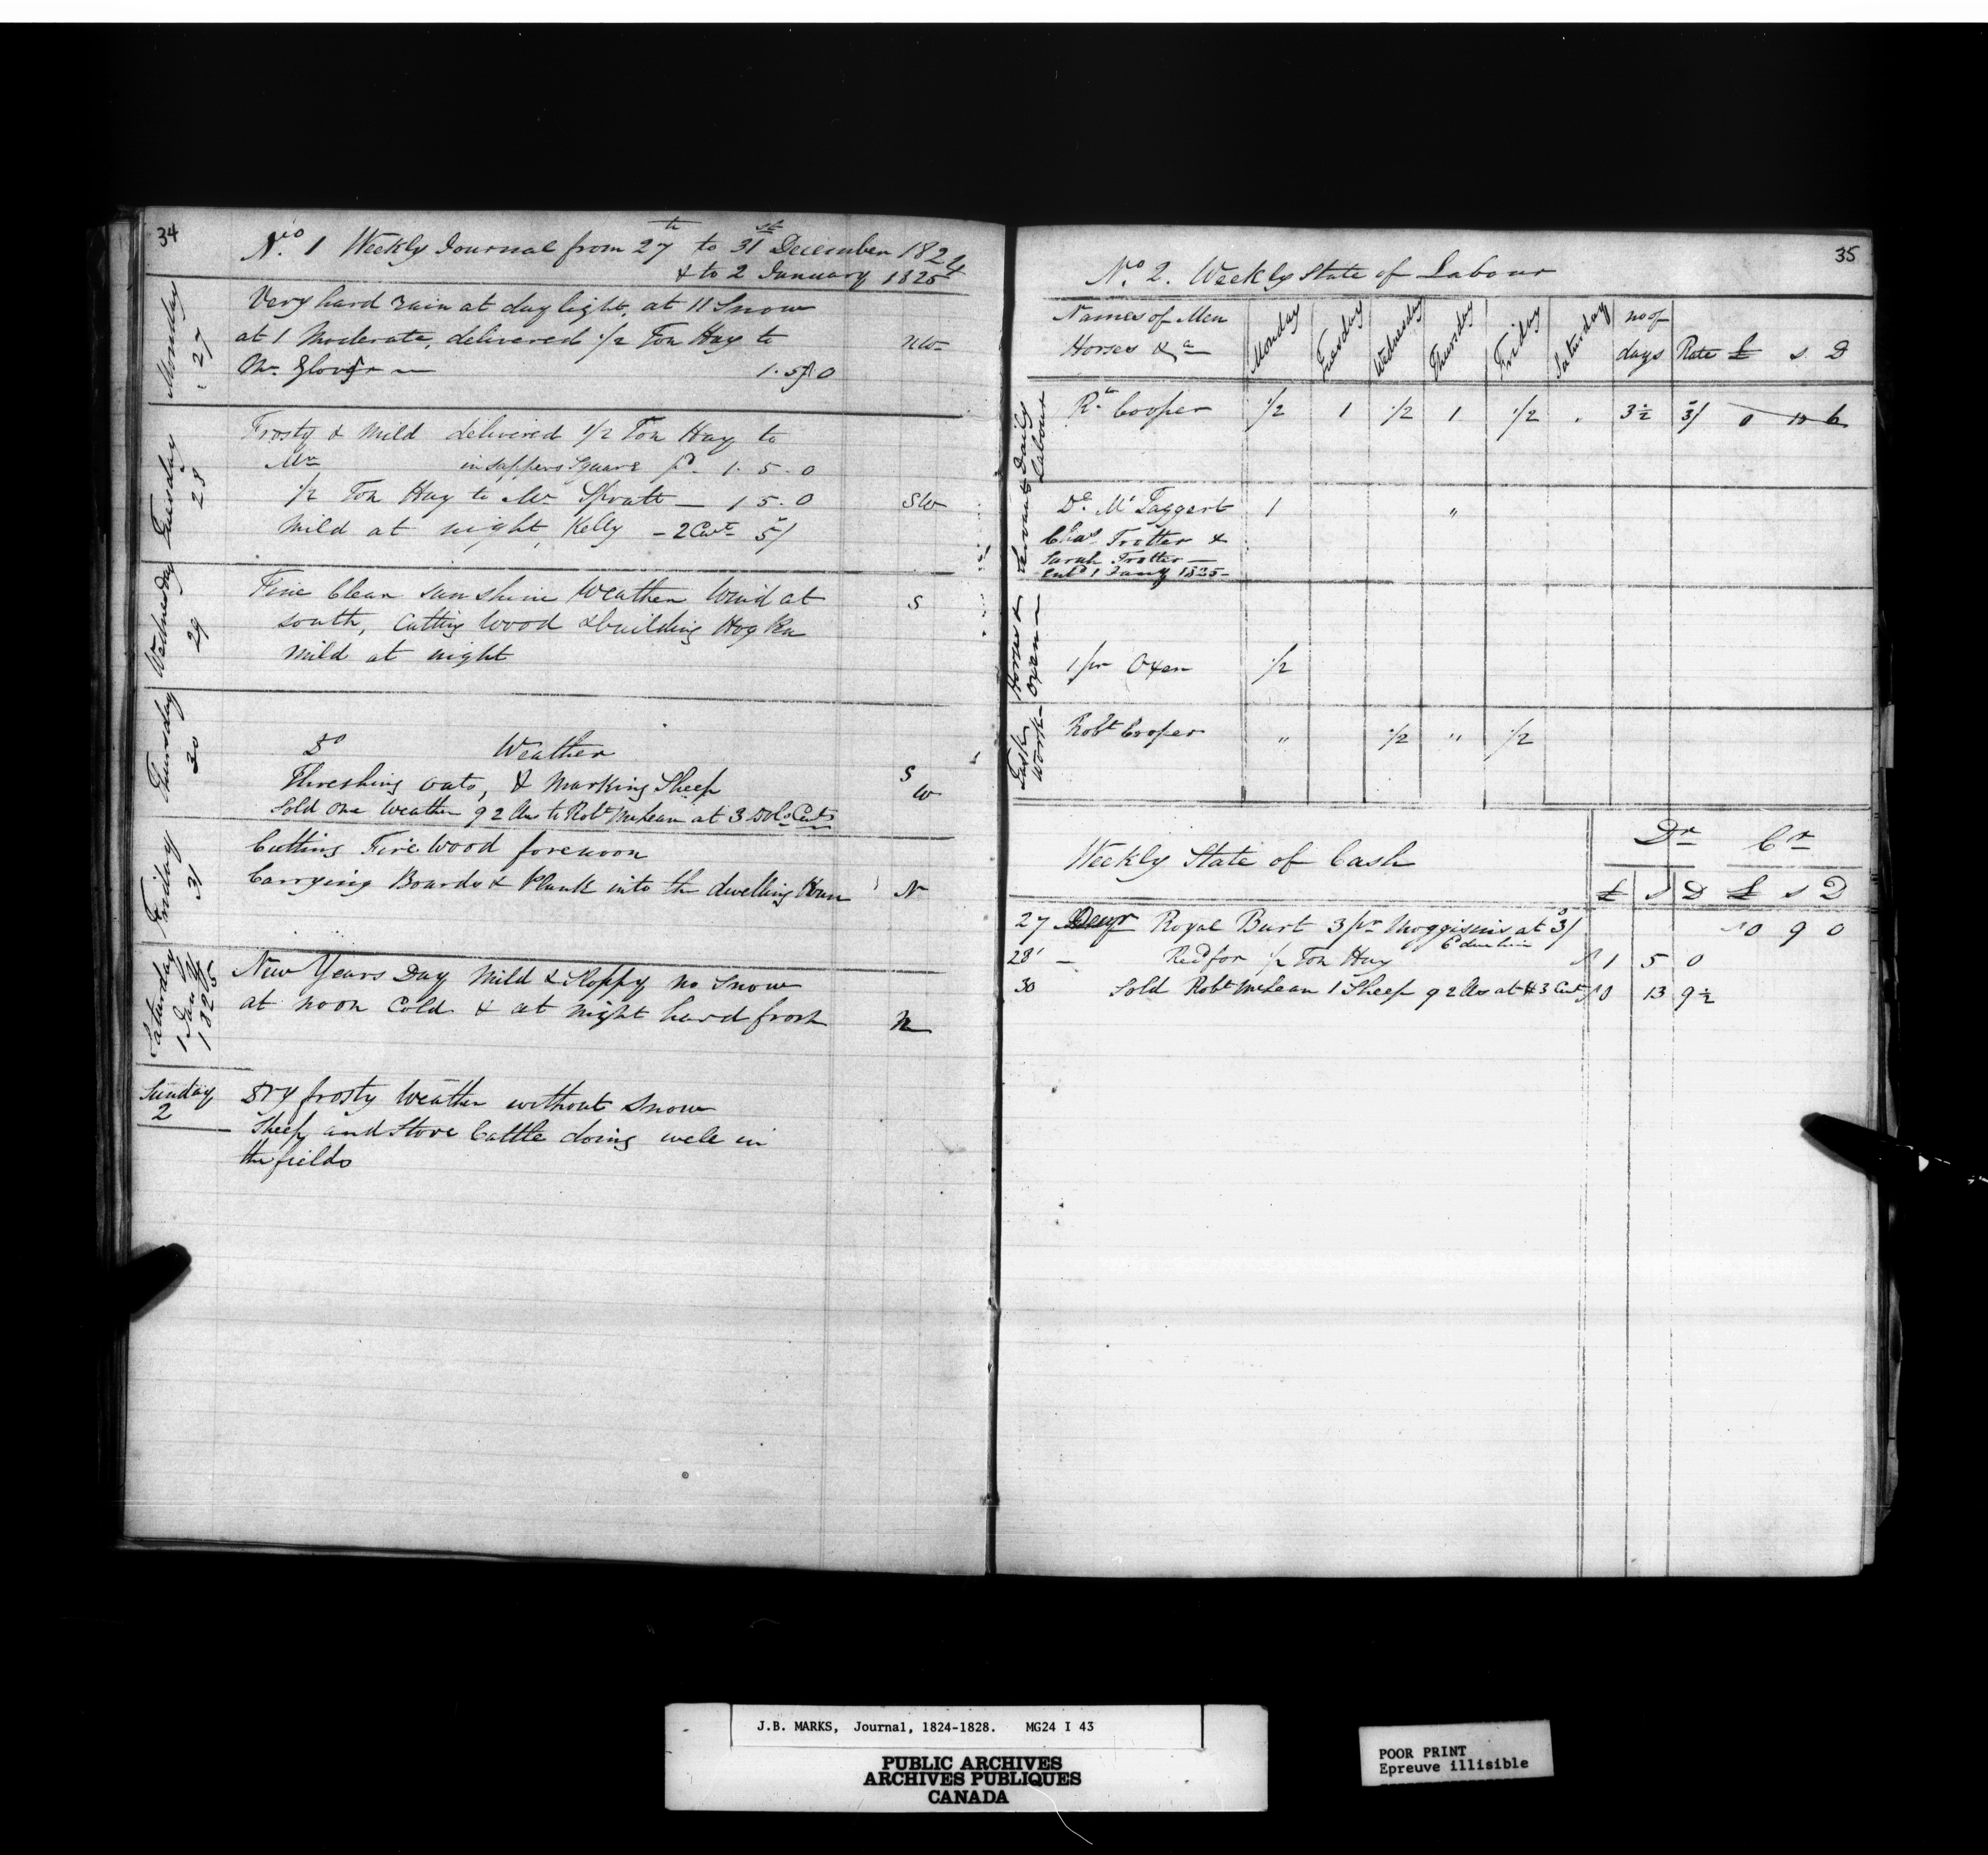 34
No. 1 Weekly Journal from 27th to 31st December 1824
& to 2 January 1825
Monday 27
Very hard rain at day light, at 11 Snow
at 1 Moderate, delivered 1/2 Ton Hay to NW
Mr. Glover 1.5.0
Tuesday 28
Frosty & mild delivered 1/2 Ton Hay to
Mr in Sappers Square pd. 1.5.0
1/2 Ton Hay to Mr Spratt — 1 5.0 SW
Mild at night, Kelly - 2 Cwt 5/
Wednesday 29
Fine Clear sun shine Weather Wind at S
south, Cutting Wood & building Hog Pen
Mild at night
Thursday 30
Do Weather
Threshing oats, & Marking Sheep S W
Sold one Weather 92 lbs to Robt McLean at 3 Dols Cents
Friday 31
Cutting Fire Wood forenoon
Carrying Boards & Plank into the dwelling House N
Saturday 1 Jany 1825
New Years Day Mild & Sloppy no Snow
at noon Cold & at night hard frost N
Sunday 2
Dry frosty Weather without Snow
Sheep and Store Cattle doing well in
the fields
35
No. 2. Weekly State of Labour
Names of Men Horses &a Monday Tuesday Wednesday Thursday Friday Saturday no of days Rate £ s D
Servants Daily Labour
Rt Cooper 1/2 1 1/2 1 1/2 . 3 1/2 3/ 0 10 6
Do McTaggert 1 "
Chas Trotter &
Sarah Trotter —
Entd 1 Jany 1825 -
Horses & Oxen
1 pr Oxen 1/2
Task Work
Robt Cooper " 1/2 " 1/2
Weekly State of Cash Dr Cr
£ s D £ s D
27 Decr Royal Burt 3 pr Moggisins at 3/ 0 9 0
28 — Recd for 1/2 Ton Hay 1 5 0
30 Sold Robt McLean 1 Sheep 92 lbs at 3 Cents 0 13 9 1/2
J.B. MARKS, Journal, 1824-1828. MG24 I 43
PUBLIC ARCHIVES
ARCHIVES PUBLIQUES
CANADA
POOR PRINT
Epreuve illisible